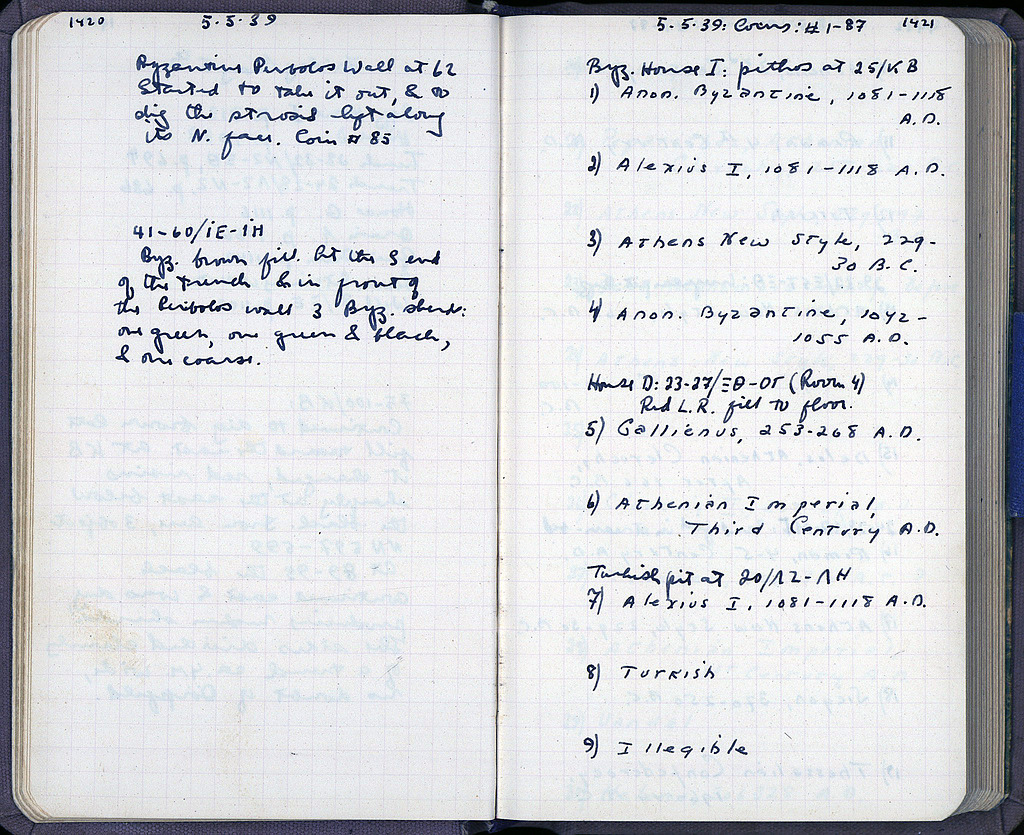 1420
5.5.39
Byzantine Peribolos Wall at 62
Started to take it out, & to
dig the strosis left along
its N. face. Coin # 85
41-60/ΙΕ-ΙΗ
Byz. brown fill. At the S end
of the trench & in front of
the Peribolos wall 3 Byz. sherds:
one green, one green & black,
& one coarse.
5.5.39: Coins: #1-87
1421
Byz. House I: pithos at 25/ΚΒ
1) Anon. Byzantine, 1081-1118
A.D.
2) Alexius I, 1081-1118 A.D.
3) Athens New Style, 229-
30 B.C.
4) Anon. Byzantine, 1042-
1055 A.D.
House D: 23-27/ΞΘ-ΟΓ (Room 4)
Red L.R. fill to floor.
5) Gallienus, 253-268 A.D.
6) Athenian Imperial,
Third Century A.D.
Turkish pit at 20/ΛΖ-ΛΗ
7) Alexius I, 1081-1118 A.D.
8) Turkish
9) Illegible